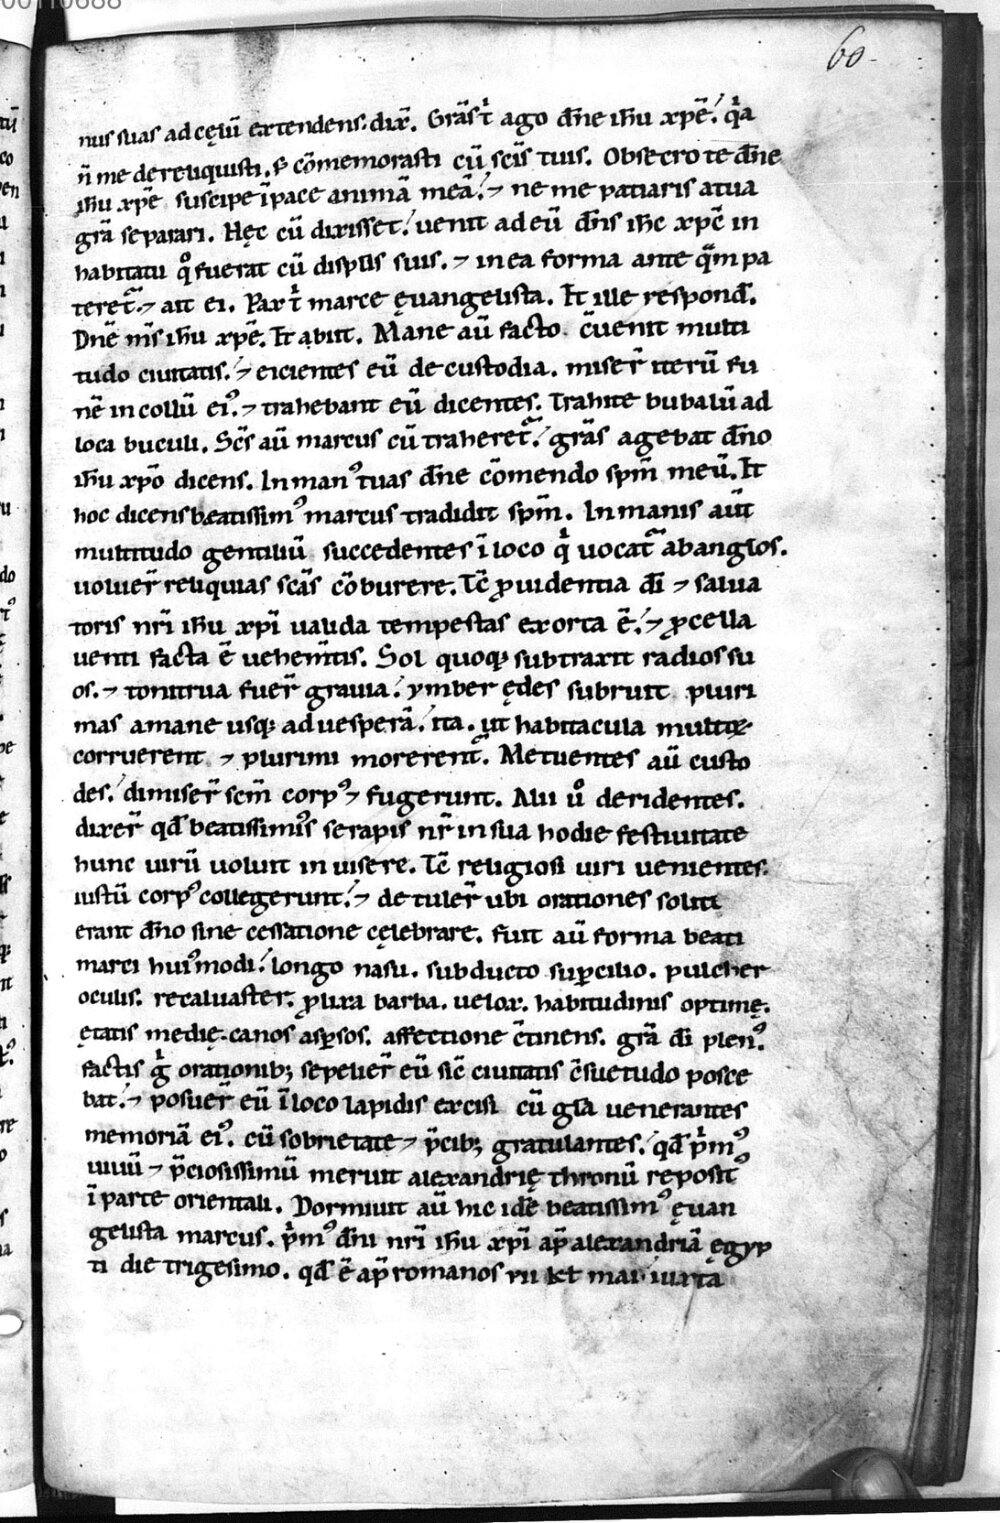 60
nus suas ad cęlū extendens. dix̄. Grās t̄ ago dn̄e ih̄u xp̄e. qͥa
n̄ me dereliquisti. s; cōmemorasti cū scīs tuis. Obsecro te dn̄e
ih̄u xp̄e suscipe ī pace animā meā. ⁊ ne me patiaris a tua
grā separari. Hęc cū dixisset. uenit ad eū dn̄s ih̄c xp̄c in
habitatu q̊ fuerat cū displīs suis. ⁊ in ea forma ante qͣm pa
teret᷑. ⁊ ait ei. Pax tͥ marce ęuangelista. Et ille respond̄.
Dn̄e m̄s ih̄u xp̄e. Et abiit. Mane aū facto c̄uenit multi
tudo ciuitatis. ⁊ eicientes eū de custodia. miser̄ iterū fu
nē in collū eiꝰ. ⁊ trahebant eū dicentes. Trahite bubalū ad
loca buculi. Scs̄ aū marcus cū traheret᷑. grās agebat dn̄o
ih̄u xp̄o dicens. In manꝰ tuas dn̄e cōmendo spm̄ meū. Et
hoc dicens beatissimꝰ marcus tradidit spm̄. Inmanis aūt
multitudo gentiliū succedentes ī loco qͥ uocat᷑ ab anglos.
uoluer̄ reliquias scās cōburere. Tc̄ ꝓuidentia dī ⁊ salua
toris nr̄i ih̄u xp̄i ualida tempestas exorta ē. ⁊ ꝓcella
uenti facta ē uehem̄tis. Sol quoq; subtraxit radios su
os. ⁊ tonitrua fuer̄ grauia. ymber ędes subruit pluri
mas a mane usq; ad uesperā. ita. ut habitacula multa
corruerent ⁊ plurimi morerent᷑. Metuentes aū custo
des. dimiser̄ scm̄ corpꝰ ⁊ fugerunt. Alii u̇o deridentes.
dixer̄ qd̄ beatissimꝰs serapis nr̄ in sua hodie festiuitate
hunc uirū uoluit inuisere. Tc̄ religiosi uiri uenientes.
iustū corpꝰ collegerunt. ⁊ detuler̄ ubi orationes soliti
erant dn̄o sine cessatione cęlebrare. Fuit aū forma beati
marci huiꝰmodi. longo naso. subducto suꝑcilio. pulcher
oculis. recaluaster. ꝓlixa barba. uelox. habitudinis optimę.
ętatis medię. canos asꝑsos. affectione c̄tinens. grā dī plenꝰ.
factis gͥ orationib; sepelier̄ eū sic̄ ciuitatis c̄suetudo posce
bat. ⁊ posuer̄ eū ī loco lapidis excisi cū glā uenerantes
memoriā eiꝰ. cū sobrietate ⁊ p̄cib; gratulantes. qd̄ pͥmꝰ
uiuū ⁊ p̄ciosissimū meruit alexandrię thronū repositꝰ
ī parte orientali. Dormiuit aū hic idē beatissimꝰ ęuan
gelista marcus. pͥmꝰ dn̄i nr̄i ih̄u xp̄i ap̄ alexandriā ęgyp
ti die trigesimo. qd̄ ē ap̄ romanos vii kł mai iuxta